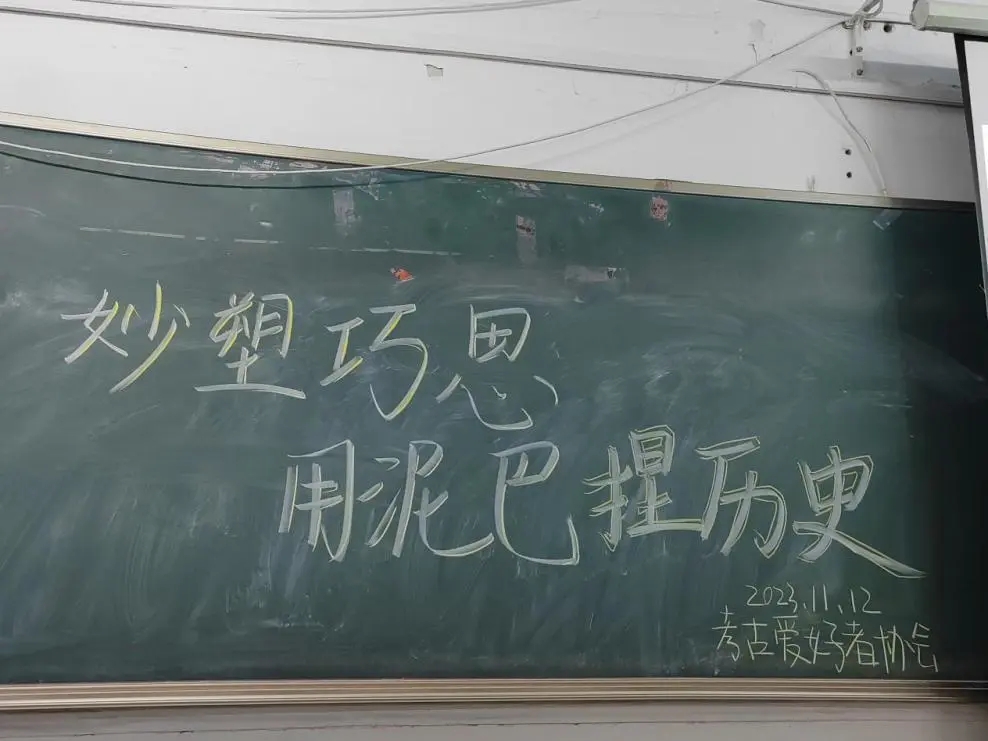 妙塑巧思
用泥巴捏历史
2023.11.12
考古爱好者协会